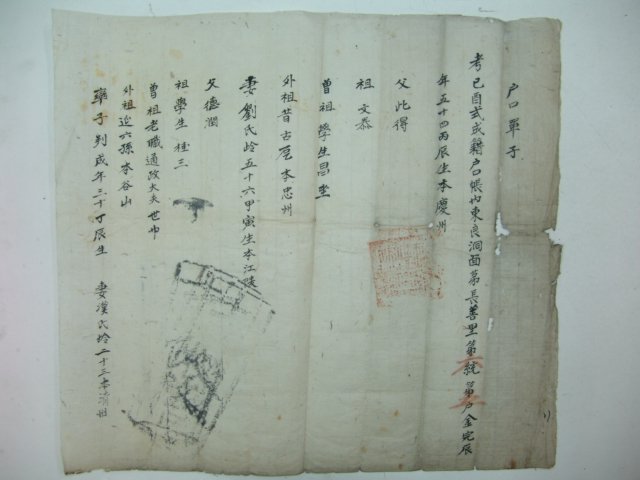 戶口單子
考己酉式成籍戶口帳內東良洞面第長善里第統第戶金宅辰
年五十四丙辰生本慶州
父比得
祖文恭
曾祖學生昌
外祖昔古 本忠州
妻劉氏岭五十六甲寅生本江陵
父德潤
祖學生桂三
曾祖老職通政大夫世巾
外祖 六孫本谷山
率子 成年三十丁辰生 妻漢氏岭二十三本